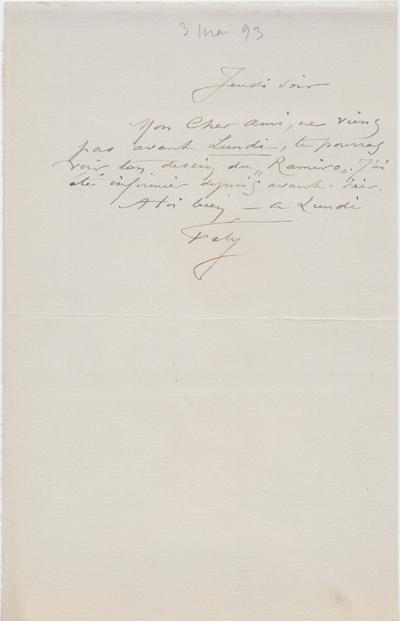 3 mai 93
Jeudi soir
Mon Cher ami, ne viens
pas avant Lundi, tu pourras
voir ton dessin du „Ramiro„. J'ai
été infirmier depuis avant-hier.
A toi bien — a Lundi